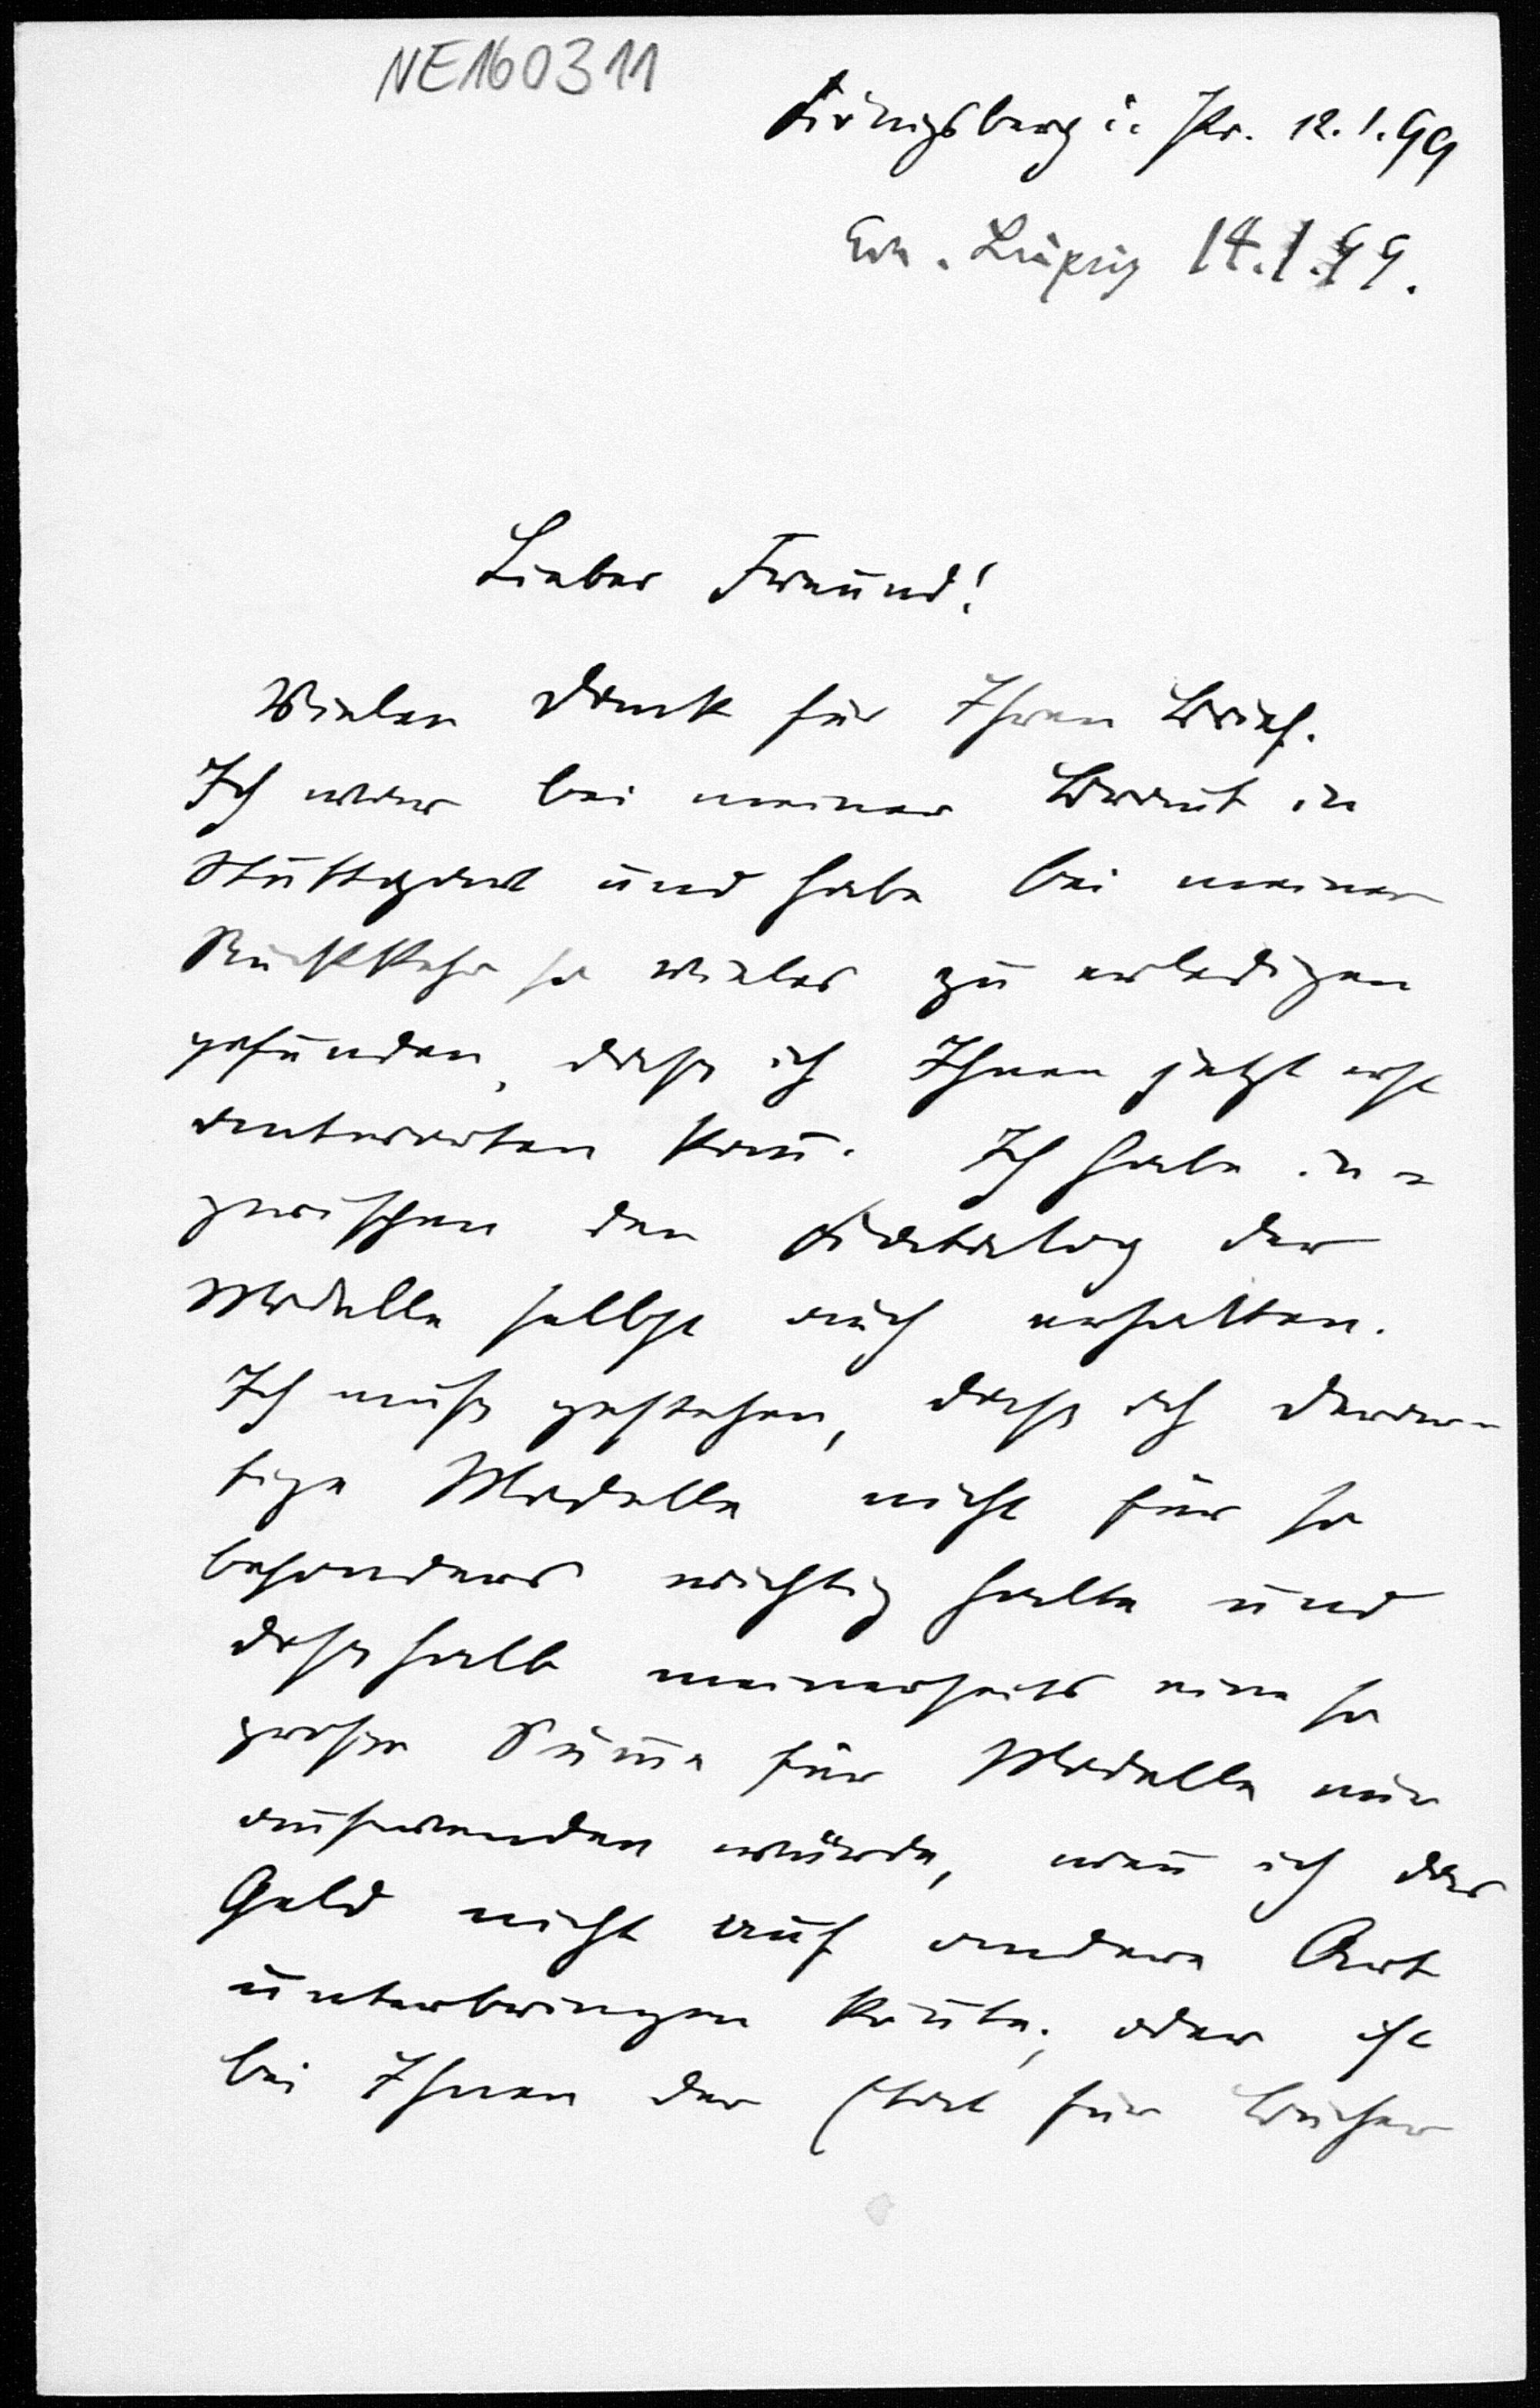 NE160311
Königsberg i. Pr. 12.1.99
Erh. Leipzig 14.1.99.
Lieber Freund!
Vielen Dank für Ihren Brief.
Ich war bei meiner Braut in
Stuttgart und habe bei meiner
Rückkehr so vieles zu erledigen
gefunden, dass ich Ihnen jetzt erst
antworten kan̄. Ich habe in-
zwischen den Katalog der
Modelle selbst auch erhalten.
Ich muss gestehen, dass ich derar-
tige Modelle nicht für so
besonders wichtig halte und
desshalb meinerseits eine so
grosse Sum̄e für Modelle nur
aufwenden würde, wen̄ ich das
Geld nicht auf andere Art
unterbringen kön̄te; oder ist
bei Ihnen der Etat für Bücher